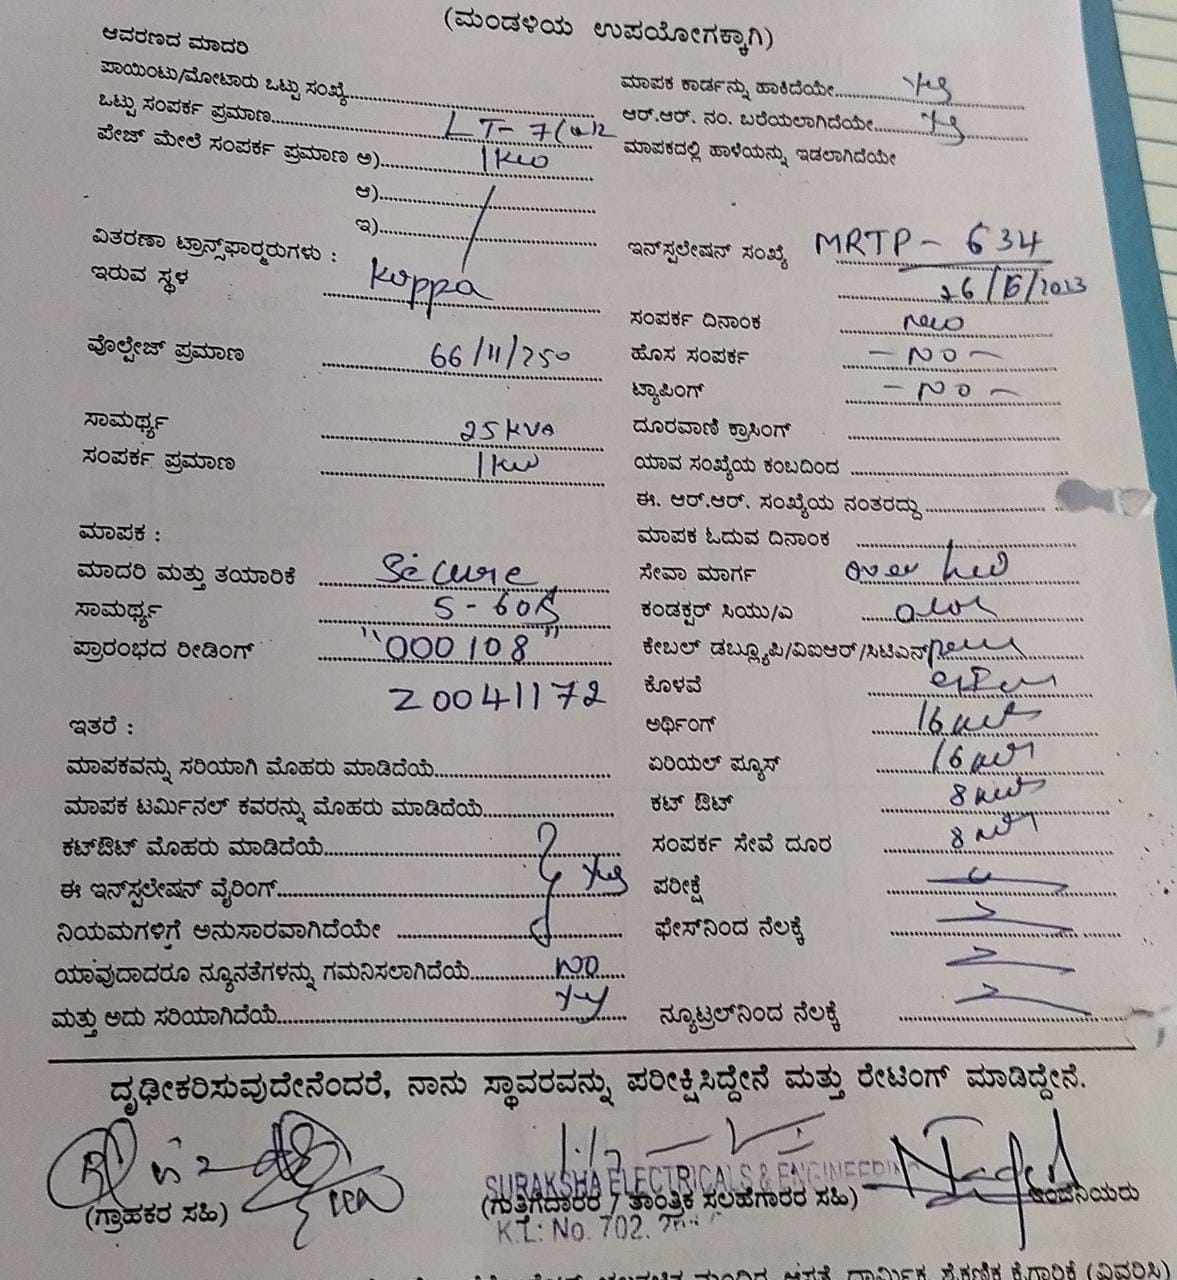 (ಮಂಡಳಿಯ ಉಪಯೋಗಕ್ಕಾಗಿ)
ಆವರಣದ ಮಾದರಿ
ಪಾಯಿಂಟು/ಮೋಟಾರು ಒಟ್ಟು ಸಂಖ್ಯೆ
ಒಟ್ಟು ಸಂಪರ್ಕ ಪ್ರಮಾಣ LT-7(a)2
ಪೇಜ್ ಮೇಲೆ ಸಂಪರ್ಕ ಪ್ರಮಾಣ ಅ) 1kw
ಆ)
ಇ)
ವಿತರಣಾ ಟ್ರಾನ್ಸ್‌ಫಾರ್‍ಮರುಗಳು :
ಇರುವ ಸ್ಥಳ Koppa
ವೊಲ್ಟೇಜ್ ಪ್ರಮಾಣ 66/11/250
ಸಾಮರ್ಥ್ಯ 25KVA
ಸಂಪರ್ಕ ಪ್ರಮಾಣ 1kw
ಮಾಪಕ :
ಮಾದರಿ ಮತ್ತು ತಯಾರಿಕೆ Secure
ಸಾಮರ್ಥ್ಯ 5-60A
ಪ್ರಾರಂಭದ ರೀಡಿಂಗ್ "000108"
20041172
ಇತರೆ :
ಮಾಪಕವನ್ನು ಸರಿಯಾಗಿ ಮೊಹರು ಮಾಡಿದೆಯೆ
ಮಾಪಕ ಟರ್ಮಿನಲ್ ಕವರನ್ನು ಮೊಹರು ಮಾಡಿದೆಯೆ
ಕಟ್‌ಔಟ್ ಮೊಹರು ಮಾಡಿದೆಯೆ
ಈ ಇನ್‌ಸ್ಟಲೇಷನ್ ವೈರಿಂಗ್ Yes
ನಿಯಮಗಳಿಗೆ ಅನುಸಾರವಾಗಿದೆಯೇ
ಯಾವುದಾದರೂ ನ್ಯೂನತೆಗಳನ್ನು ಗಮನಿಸಲಾಗಿದೆಯೆ NO
ಮತ್ತು ಅದು ಸರಿಯಾಗಿದೆಯೆ Yes
ಮಾಪಕ ಕಾರ್ಡನ್ನು ಹಾಕಿದೆಯೇ Yes
ಆರ್.ಆರ್. ನಂ. ಬರೆಯಲಾಗಿದೆಯೇ Yes
ಮಾಪಕದಲ್ಲಿ ಹಾಳೆಯನ್ನು ಇಡಲಾಗಿದೆಯೇ
ಇನ್‌ಸ್ಟಲೇಷನ್ ಸಂಖ್ಯೆ MRTP - 634
ಸಂಪರ್ಕ ದಿನಾಂಕ new
ಹೊಸ ಸಂಪರ್ಕ - NO -
ಟ್ಯಾಪಿಂಗ್ - NO -
ದೂರವಾಣಿ ಕ್ರಾಸಿಂಗ್
ಯಾವ ಸಂಖ್ಯೆಯ ಕಂಬದಿಂದ
ಈ. ಆರ್.ಆರ್. ಸಂಖ್ಯೆಯ ನಂತರದ್ದು
ಮಾಪಕ ಓದುವ ದಿನಾಂಕ
ಸೇವಾ ಮಾರ್ಗ over hed
ಕಂಡಕ್ಟರ್ ಸಿಯು/ಎ
ಕೇಬಲ್ ಡಬ್ಲ್ಯೂಪಿ/ವಿಐಆರ್/ಸಿಟಿಎನ್
ಕೊಳವೆ
ಅರ್ಥಿಂಗ್ 16
ಏರಿಯಲ್ ಪ್ಯೂಸ್ 16
ಕಟ್ ಔಟ್ 8
ಸಂಪರ್ಕ ಸೇವೆ ದೂರ 8
ಪರೀಕ್ಷೆ
ಫೇಸ್‌ನಿಂದ ನೆಲಕ್ಕೆ
ನ್ಯೂಟ್ರಲ್‌ನಿಂದ ನೆಲಕ್ಕೆ
ದೃಢೀಕರಿಸುವುದೇನೆಂದರೆ, ನಾನು ಸ್ಥಾವರವನ್ನು ಪರೀಕ್ಷಿಸಿದ್ದೇನೆ ಮತ್ತು ರೇಟಿಂಗ್ ಮಾಡಿದ್ದೇನೆ.
SURAKSHA ELECTRICALS & ENGINEERING
(ಗ್ರಾಹಕರ ಸಹಿ) (ಗುತ್ತಿಗೆದಾರರ / ತಾಂತ್ರಿಕ ಸಲಹೆಗಾರರ ಸಹಿ)
K.L: No. 702.